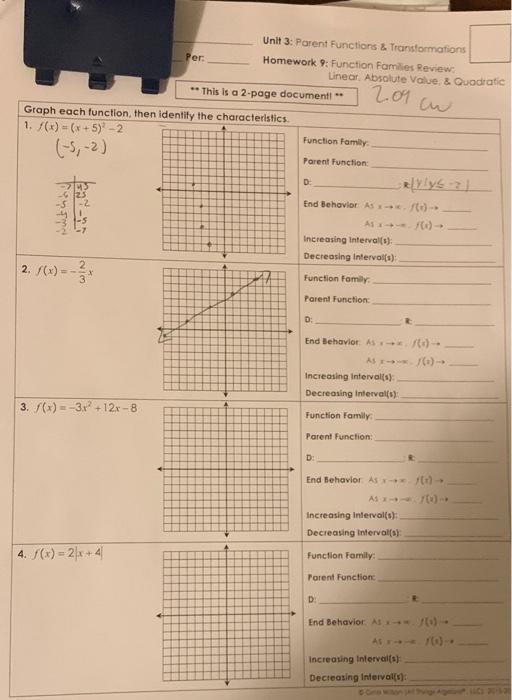 Unit 3: Parent Functions & Transformations
Per:
Homework 9: Function Families Review:
Linear, Absolute Value, & Quadratic
** This is a 2-page document! **
2.09 cw
Graph each function, then identify the characteristics.
1. f(x) = (x + 5)² – 2
(-5, -2)
-5 | -2
-3 | -5
-2 | -7
Function Family:
Parent Function:
D: R: {y|y≤-2}
End Behavior: As x → ∞, f(x) →
As x → -∞, f(x) →
Increasing Interval(s):
Decreasing Interval(s):
2. f(x) = -2/3 x
Function Family:
Parent Function:
D: R:
End Behavior: As x → ∞, f(x) →
As x → -∞, f(x) →
Increasing Interval(s):
Decreasing Interval(s):
3. f(x) = -3x² + 12x – 8
Function Family:
Parent Function:
D: R:
End Behavior: As x → ∞, f(x) →
As x → -∞, f(x) →
Increasing Interval(s):
Decreasing Interval(s):
4. f(x) = 2|x + 4|
Function Family:
Parent Function:
D: R:
End Behavior: As x → ∞, f(x) →
As x → -∞, f(x) →
Increasing Interval(s):
Decreasing Interval(s):